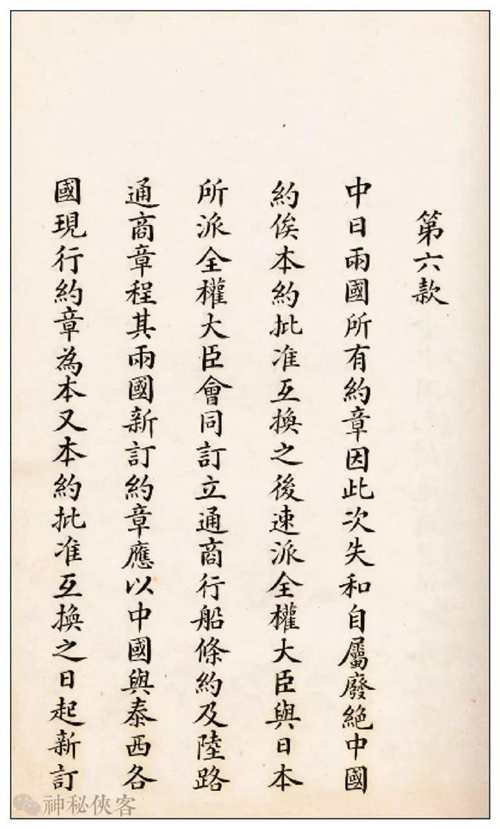 第六款
中日兩國所有約章因此次失和自屬廢絕中國
約俟本約批准互換之後速派全權大臣與日本
所派全權大臣會同訂立通商行船條約及陸路
通商章程其兩國新訂約章應以中國與泰西各
國現行約章為本又本約批准互換之日起新訂
神秘俠客